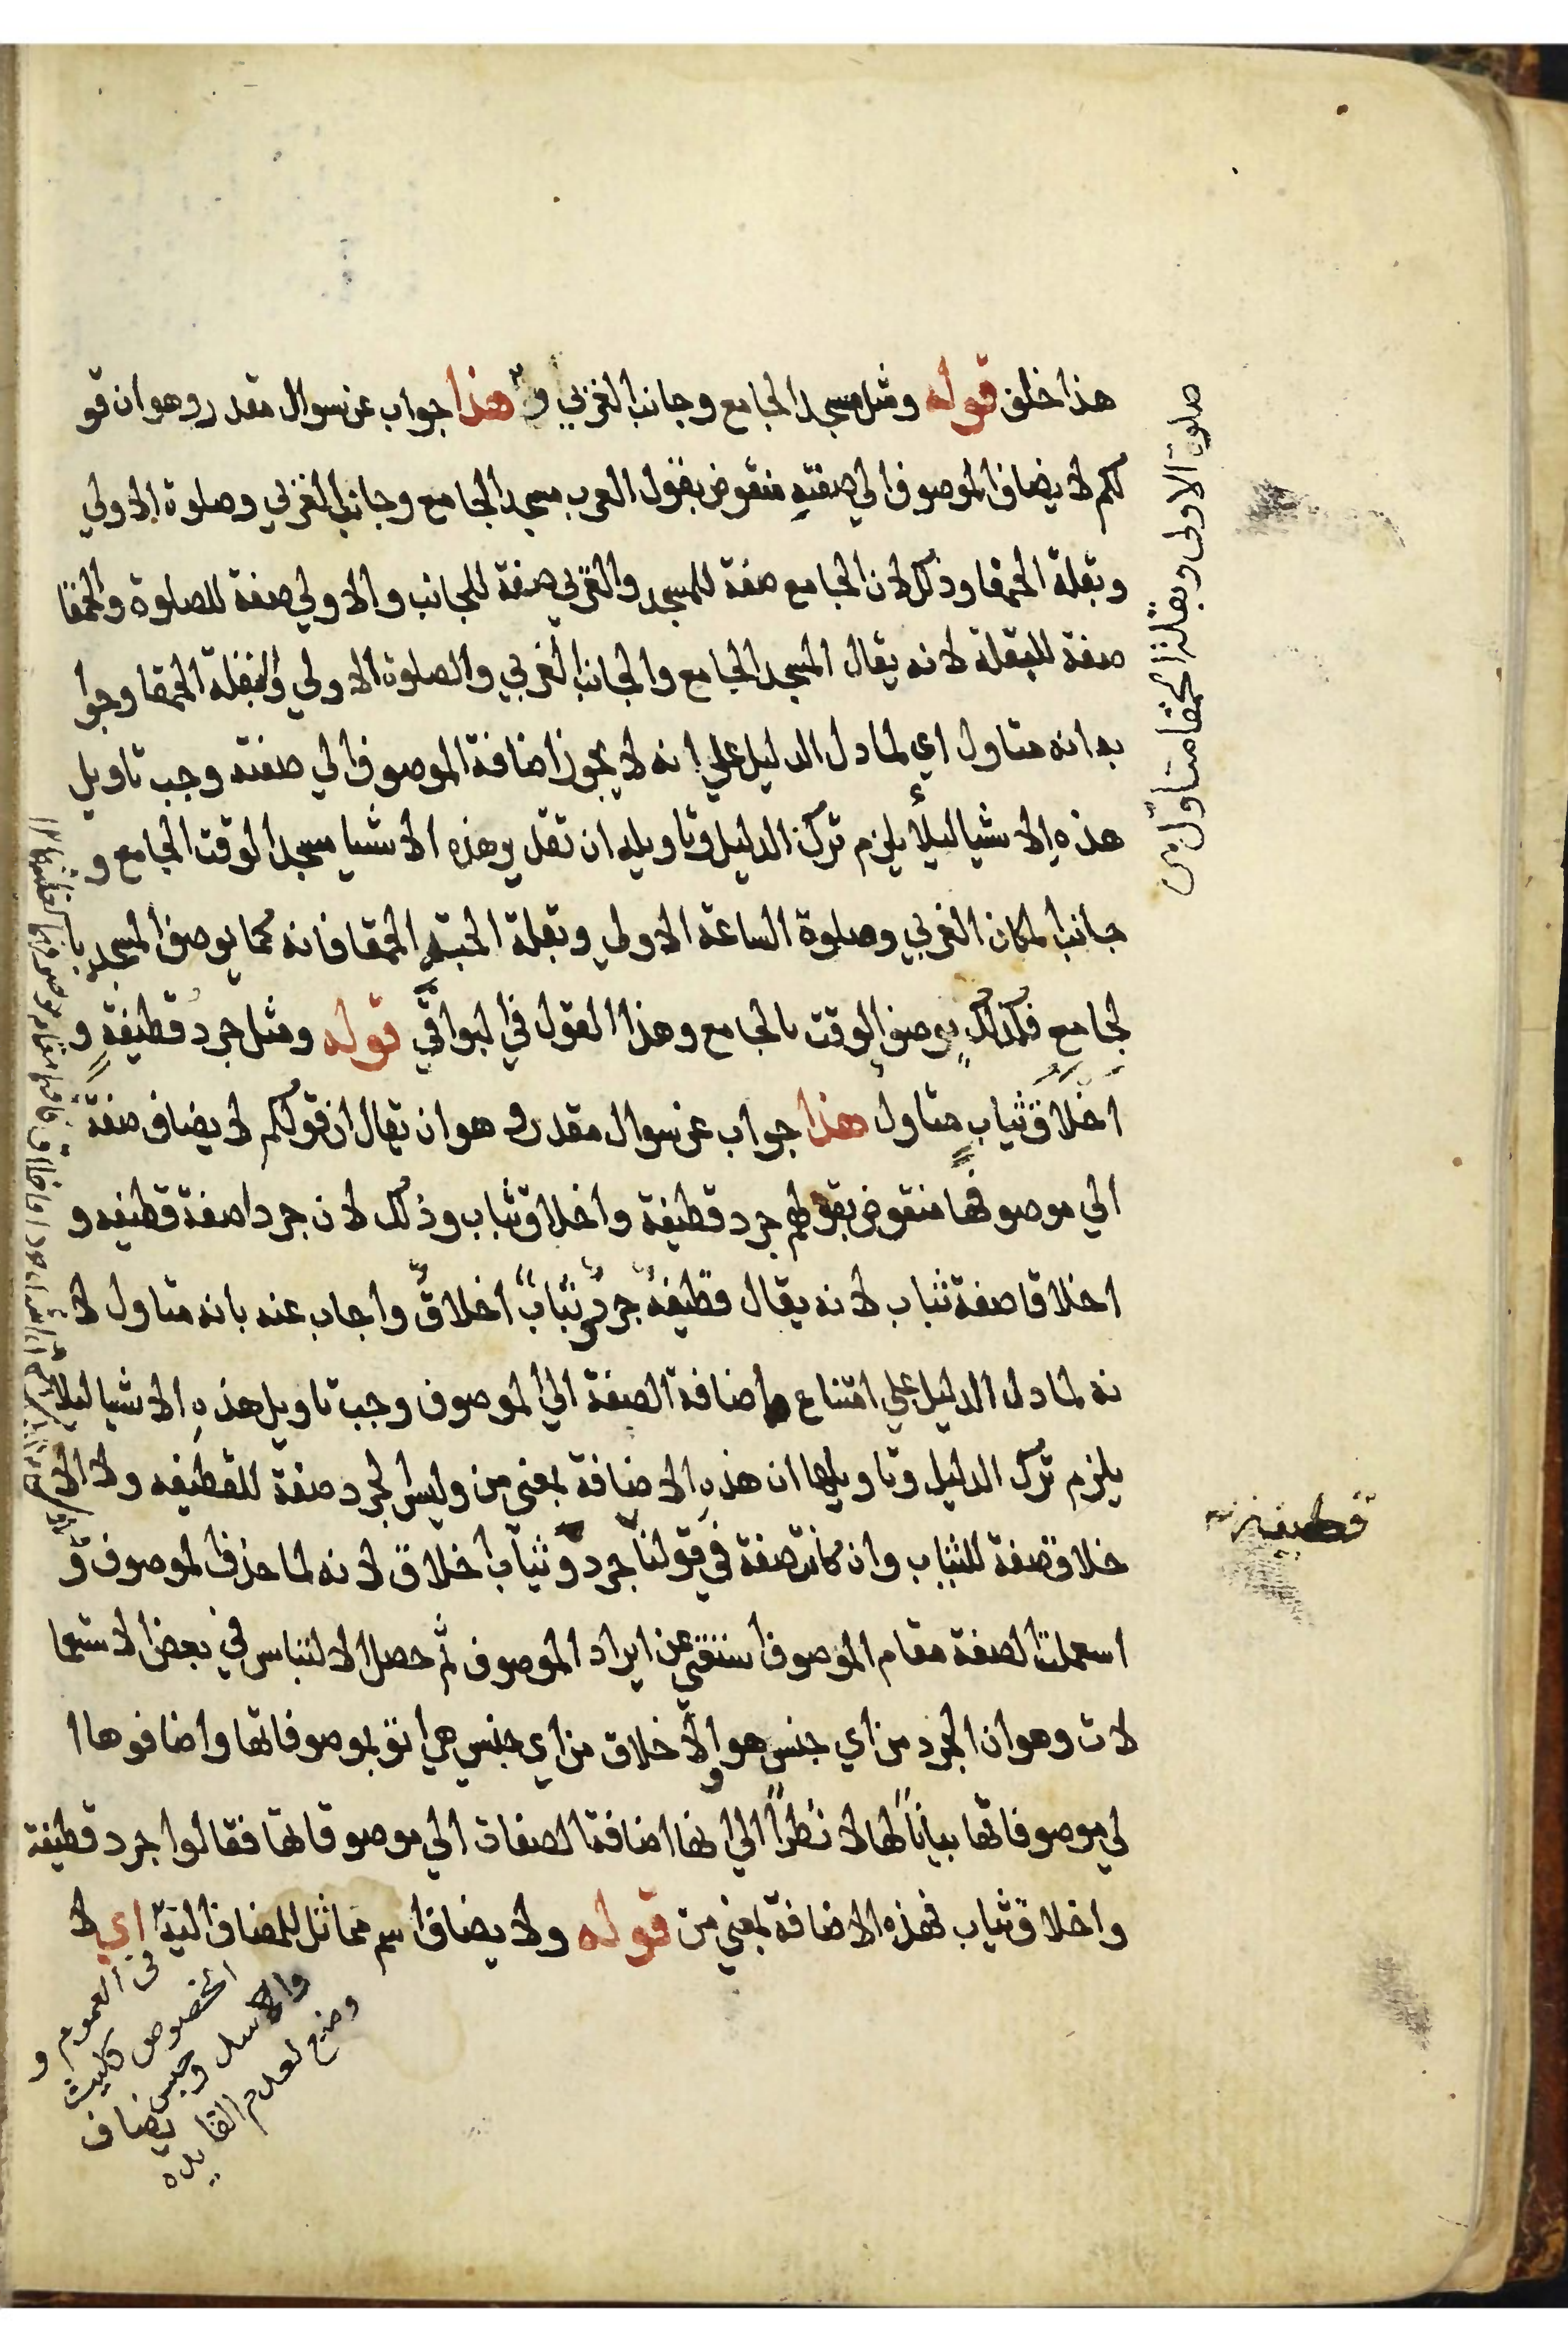 هذا خلف قوله ومثل مسجد الجامع وجانب الغربي و هذا جواب عن سوال مقدر وهو ان قو
لكم لا يضاف الموصوف الي صفته منقوض بقول العرب مسجد الجامع وجانب الغربي وصلوة الاولي
وبقلة الحمقا وذلك لان الجامع صفة للمسجد والغربي صفة للجانب والاولي صفة للصلوة والحمقا
صفة للبقلة لانه يقال المسجد الجامع والجانب الغربي والصلوة الاولي والبقلة الحمقا وجوا
به انه متاول اي لما دل الدليل علي انه لا يجوز اضافة الموصوف الي صفته وجب تاويل
هذه الاشيا ليلا يلزم ترك الدليل وتاويله ان تقدير هذه الاشيا مسجد الوقت الجامع و
جانب المكان الغربي وصلوة الساعة الاولي وبقلة الحبة الحمقا فانه كما يوصف المسجد با
لجامع فكذلك يوصف الوقت بالجامع وهذا القول في البواقي قوله ومثل جرد قطيفة و
اخلاق ثياب متاول هذا جواب عن سوال مقدر وهو ان يقال ان قولكم لا يضاف صفة
الي موصوفها منقوض بقولهم جرد قطيفة واخلاق ثياب وذلك لان جردا صفة قطيفه و
اخلاقا صفة ثياب لانه يقال قطيفة جرد وثياب اخلاق واجاب عنه بانه متاول لا
نه لما دل الدليل علي امتناع اضافة الصفة الي الموصوف وجب تاويل هذه الاشيا ليلا
يلزم ترك الدليل وتاويلها ان هذه الاضافة بمعني من وليس الجرد صفة للقطيفه ولا الا
خلاق صفة للثياب وان كانت صفة في قولنا جرد وثياب اخلاق لانه لما حذف الموصوف و
اسعملت الصفة مقام الموصوف استغني عن ايراد الموصوف ثم حصل الالتباس في بعض الاستعما
لات وهو ان الجرد من اي جنس هو والاخلاق من اي جنس هي اتو بموصوفاتها واضافوها ا
لي موصوفاتها بيانا لها لا نظرا الي انها اضافة الصفات الي موصوفاتها فقالوا جرد قطيفة
واخلاق ثياب فهذه الاضافة بمعني من قوله ولا يضاف اسم مماثل للمضاف اليه اي لا
في العموم و
الخصوص كليث
والاسد وحبس
يضاف
ومنع لعدم الفايده
صلوة الاولى وبقلة الحمقا متاول
قطيفة